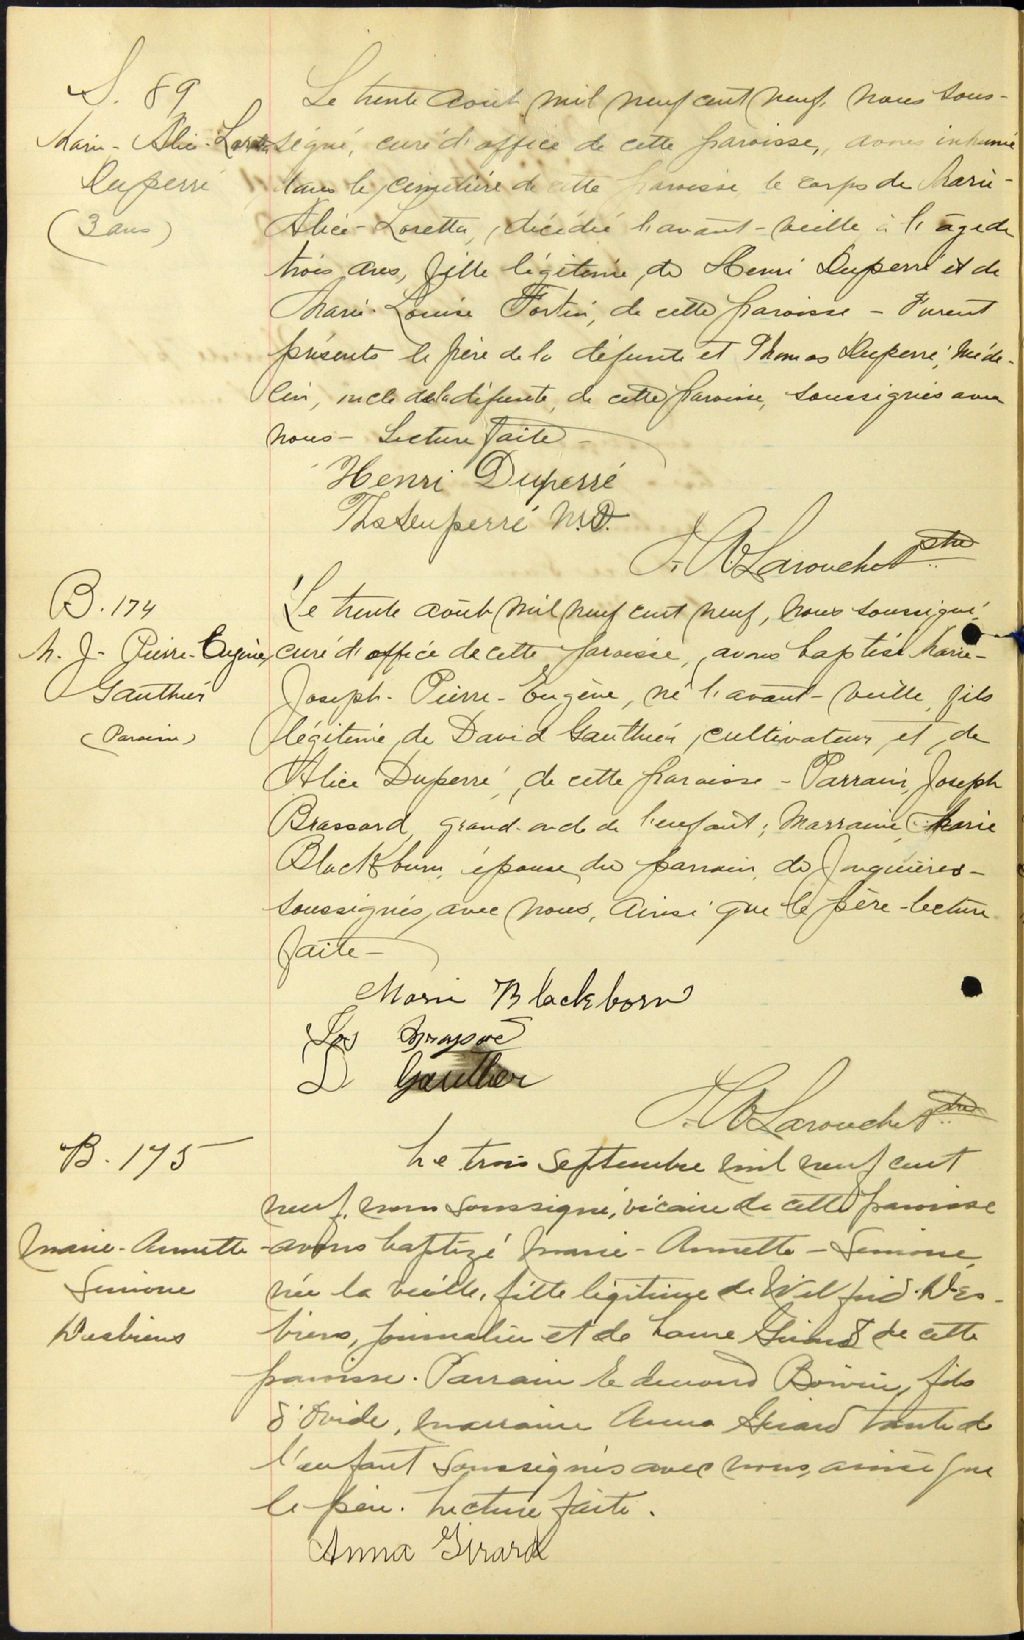 S. 89
Marie-Alice-Loretta
Duperré
(3 ans)
Le trente août mil neuf cent neuf, nous sous-
signé, curé d'office de cette paroisse, avons inhumé
dans le cimetière de cette paroisse le corps de Marie-
Alice-Loretta, décédée l'avant-veille à l'âge de
trois ans, fille légitime de Henri Duperré et de
Marie-Louise Fortin, de cette paroisse - Furent
présents le père de la défunte et Thomas Duperré, méde-
cin, oncle de la défunte, de cette paroisse, soussignés avec
nous - Lecture faite -
Henri Duperré
Ths Duperré M.D.
J. A. Larouche Ptre
B. 174
M. J- Pierre-Eugène
Gauthier
Le trente août mil neuf cent neuf, nous soussigné,
curé d'office de cette paroisse, avons baptisé Marie-
Joseph-Pierre-Eugène, né l'avant-veille, fils
légitime de David Gauthier, cultivateur, et de
Alice Duperré, de cette paroisse - Parrain, Joseph
Brassard, grand-oncle de l'enfant; Marraine, Marie
Blackburn, épouse du parrain, de Jonquières -
soussignés avec nous, ainsi que le père - lecture
faite -
Marie Blackborn
Jos
D Gauthier
J. A. Larouche Ptre
B. 175
Marie-Annette
Simone
Desbiens
Le trois septembre mil neuf cent
neuf, nous soussigné, vicaire de cette paroisse
avons baptizé Marie-Annette-Simone,
née la veille, fille légitime de Wilfrid Des-
biens, journalier et de Laure Girard de cette
paroisse. Parrain Edmond Boivin, fils
d'Ovide, marraine Anna Girard tante de
l'enfant soussignés avec nous, ainsi que
le père. Lecture faite.
Anna Girard